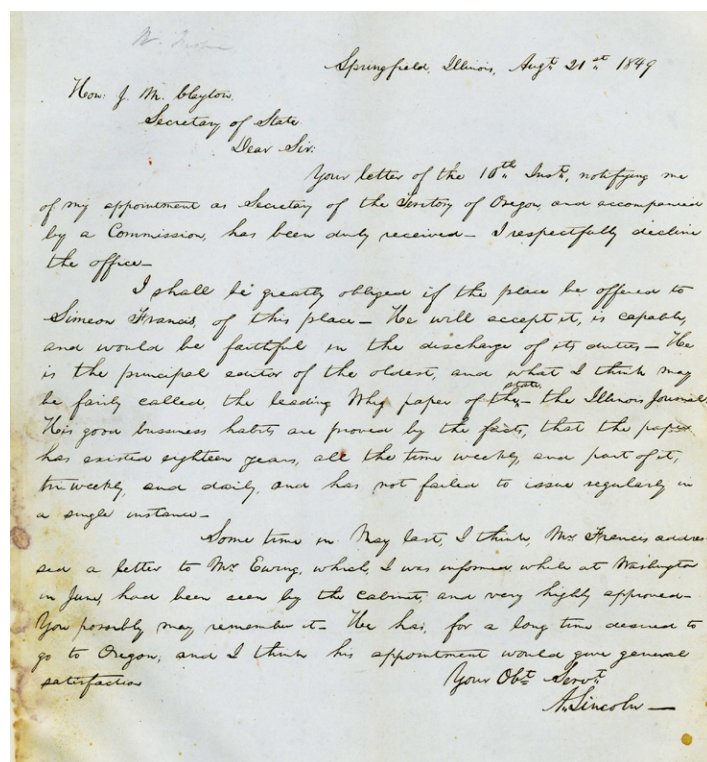 Springfield, Illinois, Augt. 21st 1849
Hon: J. M. Clayton
Secretary of State
Dear Sir:
Your letter of the 10th Inst., notifying me
of my appointment as Secretary of the Teritory of Oregon, and accompanied
by a Commission, has been duly received— I respectfully decline
the office—
I shall be greatly obliged if the place be offered to
Simeon Francis, of this place— He will accept it, is capable,
and would be faithful in the discharge of its duties— He
is the principal editor of the oldest, and what I think may
state
be fairly called, the leading Whig paper of the— the Illinois Journal.
His good business habits are proved by the fact, that the paper
has existed eighteen years, all the time weekly, and part of it,
tri weekly, and daily, and has not failed to issue regularly in
a single instance—
Some time in May last, I think, Mr Francis addres
sed a letter to Mr Ewing, which, I was informed while at Washington
in June, had been seen by the cabinet, and very highly approved—
You possibly may remember it— He has, for a long time desired to
go to Oregon, and I think his appointment would give general
satisfaction
Your Obt. Servt.
A. Lincoln—